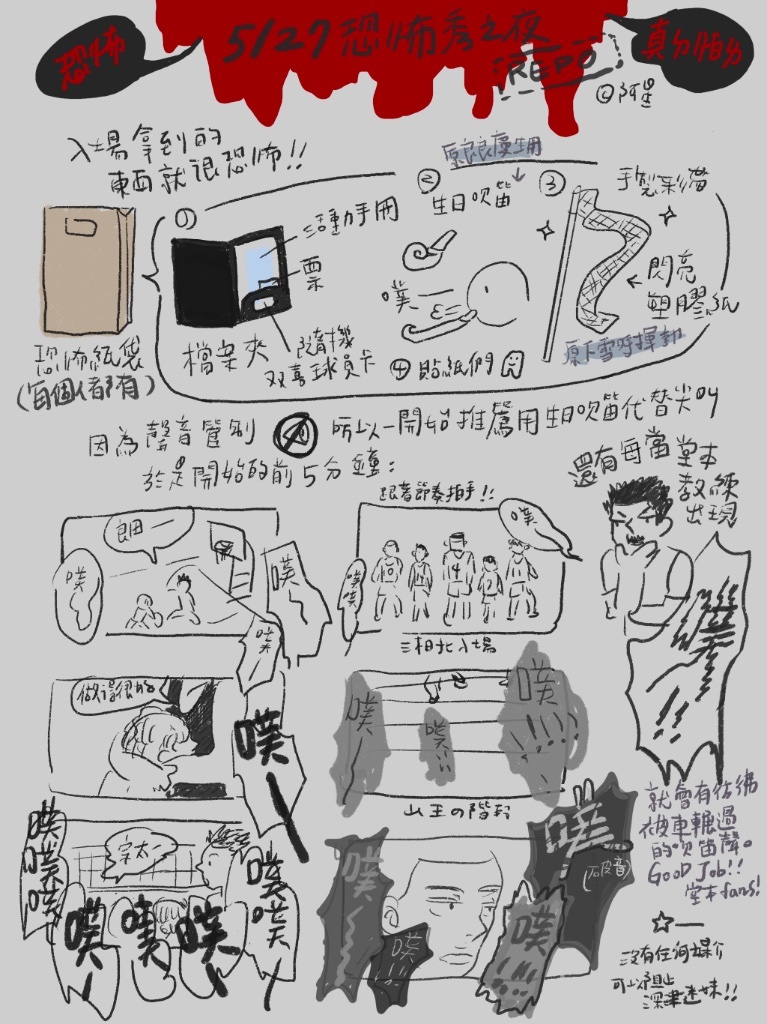 恐怖
5/27 恐怖秀之夜
REPO
真的怕的
©阿星
入場拿到的
東西就很恐怖!!
①
應手冊
票
隨機
双喜球員卡
檔案夾
原良良慶生用
②
生日吹笛
噗
④貼紙們
③
手製彩帶
閃亮
塑膠紙
原下雪時揮動
恐怖紙袋
(每個人都有)
因為聲音管制
所以一開始推薦用生日吹笛代替尖叫
於是開始的前5分鐘:
還有每當堂本
教練
出現
良田一
噗
噗
噗
跟著節奏拍手!!
噗
噗噗
10
11
4
7
14
三湘北入場
噗
!!
做得很好
噗ー
噗ー
噗!!
噗ー
!!!!
山王の階段
宗太ー
噗噗噗
噗ー
噗ー
噗ー
噗噗ー
噗
噗!!
噗
(破音)
噗
!!
就會有彷彿
被車輾過
的吹笛聲。
GOOD JOB!!
堂本fans!
☆ー
沒有任何媒介
可以阻止
深津迷妹!!